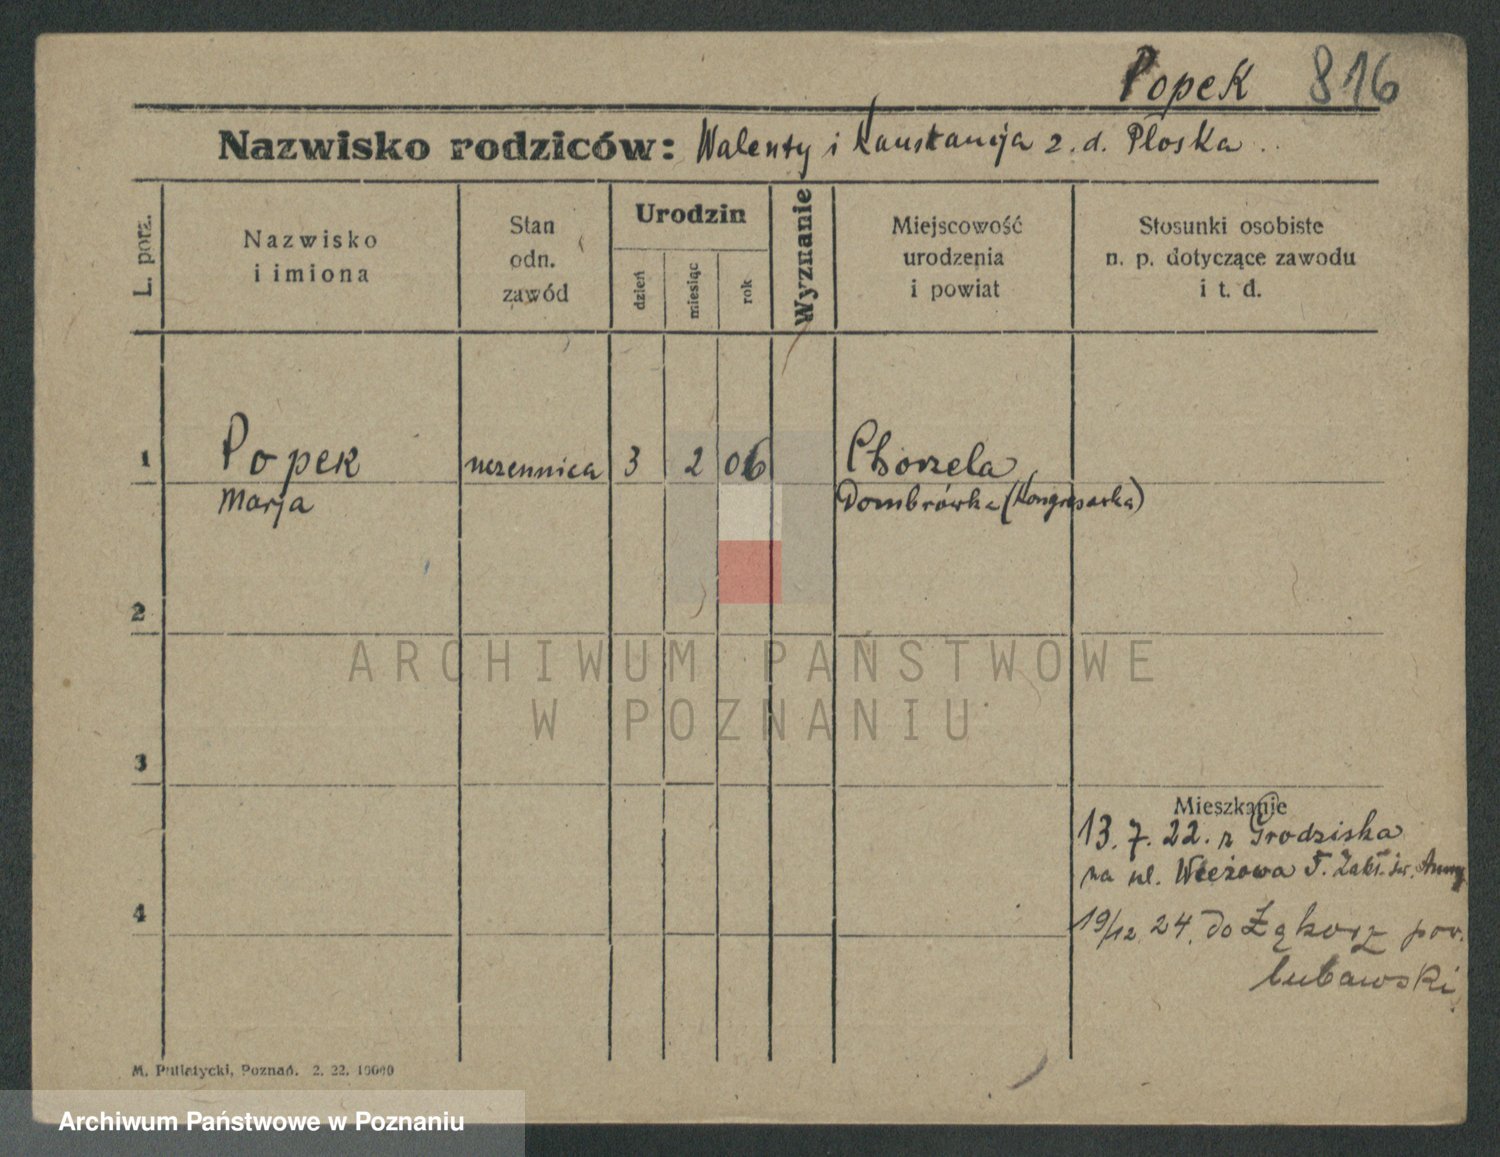 Popek 816
Nazwisko rodziców: Walenty i Konstancja z. d. Płoska
L. porz.
Nazwisko
i imiona
Stan
odn.
zawód
Urodzin
dzień
miesiąc
rok
Wyznanie
Miejscowość
urodzenia
i powiat
Stosunki osobiste
n. p. dotyczące zawodu
i t. d.
1 Popek uczennica 3 2 06 Chorzela
Marja Dombrówka (Kongresówka)
2
ARCHIWUM PAŃSTWOWE
W POZNANIU
3
Mieszkanie
13. 7. 22. z Grodziska
na ul. Wieżowa 5. Zakł. św. Anny
4
19/12 24. do Ząkorz pow.
lubawski
M. Putiatycki, Poznań. 2. 22. 10000
Archiwum Państwowe w Poznaniu